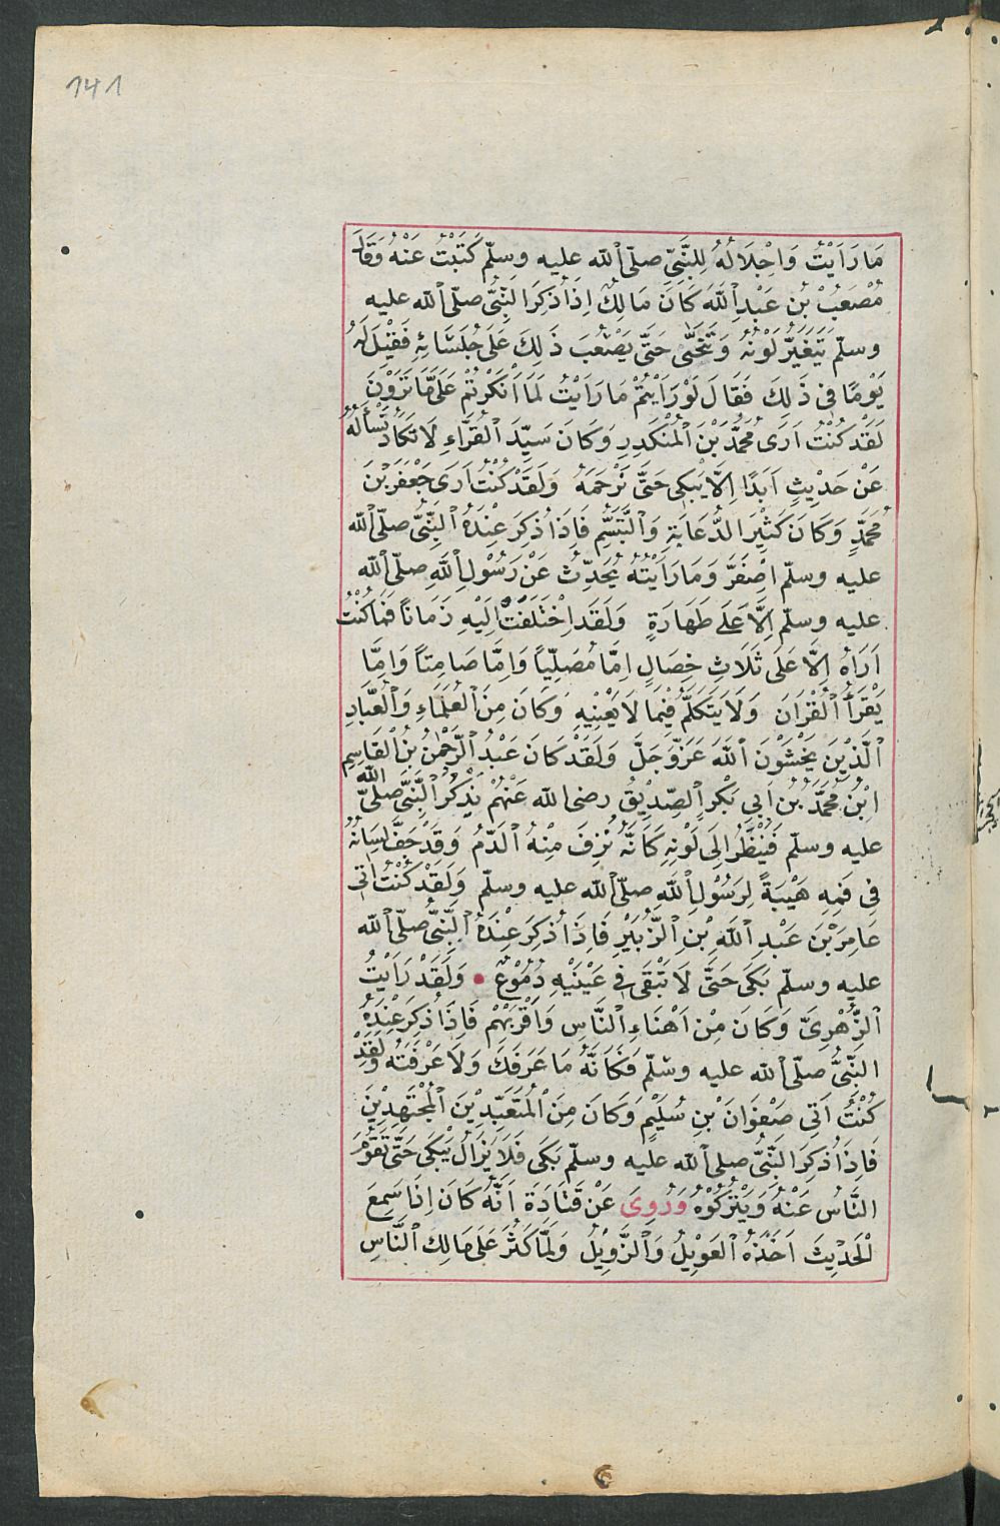 141
مَا رَاَيْتُ وَاِجْلَالُهُ لِلنَّبِيِّ صلّى الله عليه وسلّم كَتَبْتُ عَنْهُ وَقَالَ
مُصْعَبُ بْن عَبْدِ اللهَ كَانَ مَالِكٌ اِذَا ذُكِرَ النَّبِيُّ صلّى الله عليه
وسلّم يَتَغَيَّرُ لَوْنُهُ وَيَنْحَنِى حَتَّى يَصْعُبَ ذٰلِكَ عَلَى جُلَسَائِهِ فَقِيْلَ لَهُ
يَوْمًا فِى ذٰلِكَ فَقَالَ لَوْ رَاَيْتُمْ مَا رَاَيْتُ لَمَا اَنْكَرْتُمْ عَلَىَّ مَا تَرَوْنَ
لَقَدْ كُنْتُ اَرَى مُحَمَّدَ بْنَ الْمُنْكَدِرِ وَكَانَ سَيِّدَ الْقُرَّاءِ لَا تَكَادُ تَسْأَلُهُ
عَنْ حَدِيْثٍ اَبَدًا اِلَّا يَبْكِى حَتَّى نَرْحَمَهُ وَلَقَدْ كُنْتُ اَرَى جَعْفَرَ بْنَ
مُحَمَّدٍ وَكَانَ كَثِيْرَ الدُّعَابَةِ وَالتَّبَسُّمِ فَاِذَا ذُكِرَ عِنْدَهُ النَّبِيُّ صلّى الله
عليه وسلّم اِصْفَرَّ وَمَا رَاَيْتُهُ يُحَدِّثُ عَنْ رَسُوْلِ اللهِ صلّى الله
عليه وسلّم اِلَّا عَلَى طَهَارَةٍ وَلَقَدِ اخْتَلَفْتُ اِلَيْهِ زَمَاناً فَمَا كُنْتُ
اَرَاهُ اِلَّا عَلَى ثَلَاثِ خِصَالٍ اِمَّا مُصَلِّيّاً وَاِمَّا صَامِتاً وَاِمَّا
يَقْرَأُ الْقُرْاَنَ وَلَا يَتَكَلَّمُ فِيْمَا لَا يَعْنِيْهِ وَكَانَ مِنَ الْعُلَمَاءِ وَالْعُبَّادِ
الَّذِيْنَ يَخْشَوْنَ اللهَ عَزَّ وَجَلَّ وَلَقَدْ كَانَ عَبْدُ الرَّحْمٰنِ بْنُ الْقَاسِمِ
ابْنُ مُحَمَّدَ بْنِ اَبِي بَكْرٍ الصِّدِّيْقِ رضى الله عَنْهُمْ يَذْكُرُ النَّبِيَّ صَلَّى الله
عليه وسلّم فَيُنْظَرُ اِلَى لَوْنِهِ كَاَنَّهُ نُزِفَ مِنْهُ الدَّمُ وَقَدْ جَفَّ لِسَانُهُ
فِي فَمِهِ هَيْبَةً لِرَسُوْلِ اللهِ صلّى الله عليه وسلّم وَلَقَدْ كُنْتُ اٰتِى
عَامِرَ بْنَ عَبْدِ اللهِ بْنِ الزُّبَيْرِ فَاِذَا ذُكِرَ عِنْدَهُ النَّبِيُّ صلّى الله
عليه وسلّم بَكَى حَتَّى لَا تَبْقَى فِى عَيْنَيْهِ دُمُوْعٌ • وَلَقَدْ رَاَيْتُ
الزُّهْرِىَّ وَكَانَ مِنْ اَهْنَاءِ النَّاسِ وَاَقْرَبِهِمْ فَاِذَا ذُكِرَ عِنْدَهُ
النَّبِيُّ صلّى الله عليه وسلّم فَكَاَنَّهُ مَا عَرَفَكَ وَلَا عَرَفْتَهُ وَلَقَدْ
كُنْتُ اٰتِى صَفْوَانَ بْنِ سُلَيْمٍ وَكَانَ مِنَ الْمُتَعَبِّدِيْنَ الْمُجْتَهِدِيْنَ
فَاِذَا ذُكِرَ النَّبِيُّ صلى الله عليه وسلّم بَكَى فَلَا يَزَالُ يَبْكِى حَتَّى يَقُوْمَ
النَّاسُ عَنْهُ وَيَتْرُكُوْهُ وَرُوِىَ عَنْ قَتَادَةَ اَنَّهُ كَانَ اِذَا سَمِعَ
الْحَدِيْثَ اَخَذَهُ الْعَوِيْلُ وَالزَّوِيْلُ وَلَمَّا كَثُرَ عَلَى مَالِك النَّاسِ